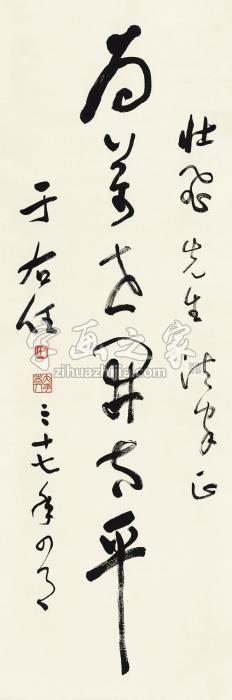 壯飛先生法家正
為萬世開太平
于右任
三十七年四月
字画之家
zihuazhijia.com